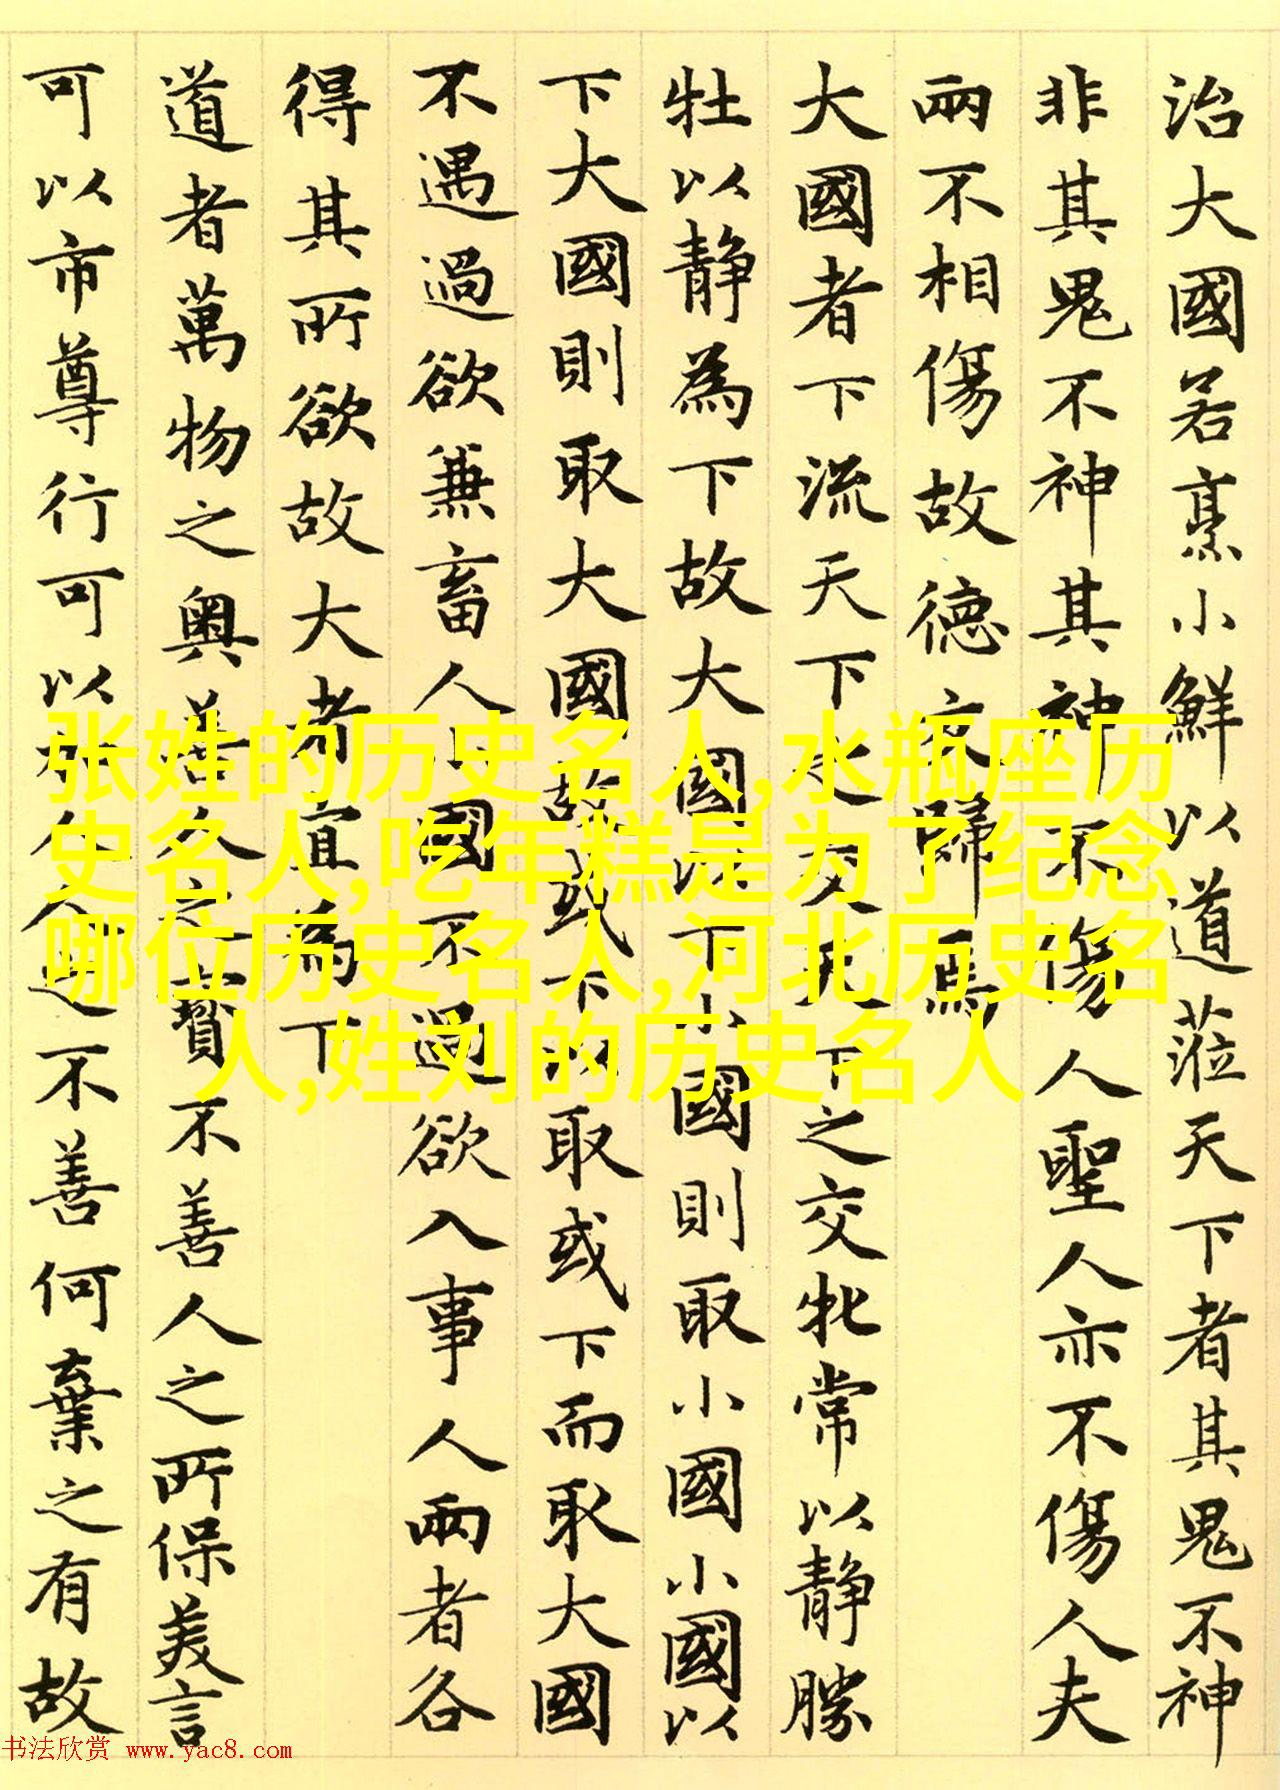 治大國若烹小鮮以道蒞天下者其鬼不神
非其鬼不神其神不傷人聖人亦不傷人夫
兩不相傷故德交歸焉
大國者下流天下之交天下之交牝常以靜勝
牡以靜為下故大國以下小國則取小國小國以
下大國則取大國故或下以取或下而取大國
不過過欲兼畜人小國不過欲入事人兩者各
得其所欲故大者宜為下
道者萬物之奧善人之寶不善人之所保美言
可以市尊行可以加人人之不善何棄之有故
张姓的历史名人,水瓶座历
史名人,吃年糕是为了纪念
哪位历史名人,河北历史名
人,姓刘的历史名人
书法欣赏 www.yac8.com